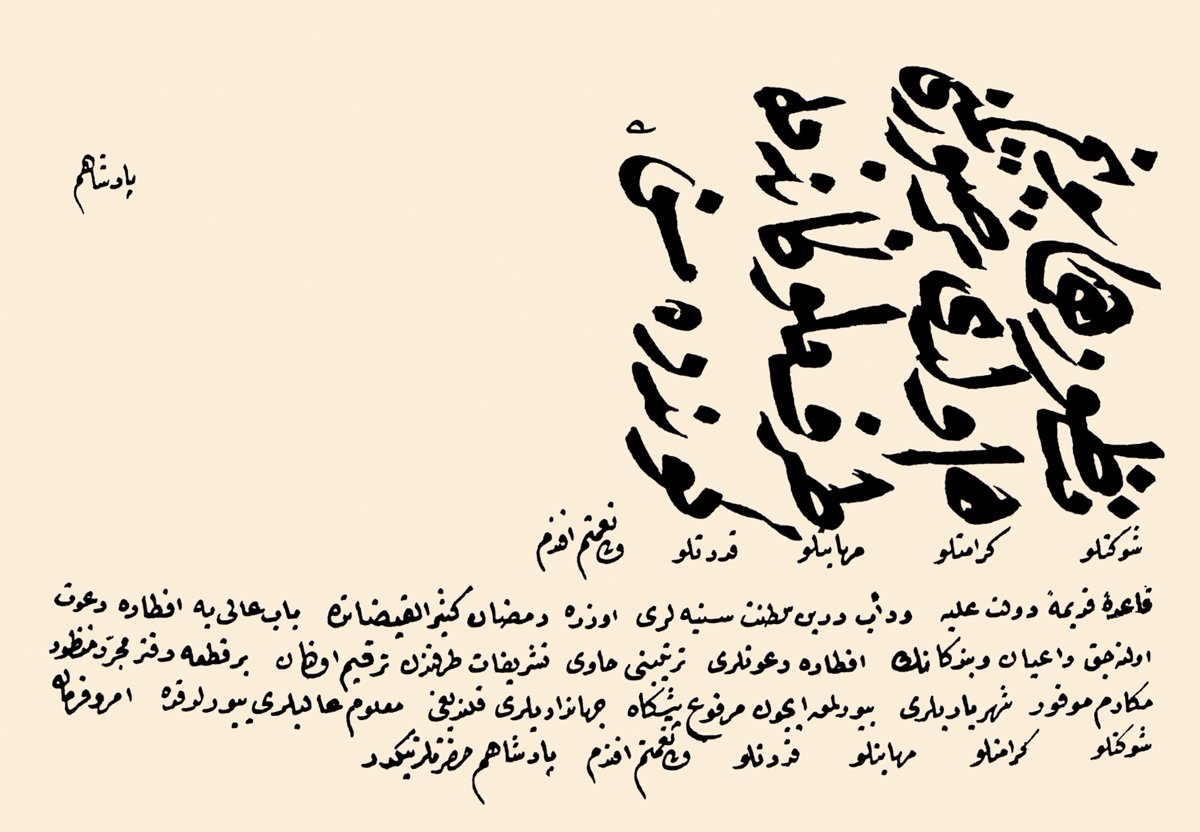 منظور
اولان
طرف ملوكانه مه
كوندره سن
پادشاهم
شوكتلو كرامتلو مهابتلو قدرتلو ولی نعمتم افندم
قاعدهٔ قدیمهٔ دولت علیه ودأب دیرین سلطنت سنیه لری اوزره رمضان كثیر الفیضانده باب عالی یه افطاره دعوت
اولنه جق داعیان وبندكانك افطاره دعوتلری ترتیبنی حاوی تشریفات طرفندن ترقیم اولنان بر قطعه دفتر مجرد منظور
مكارم موفور شهریاریلری بیورلمق ایچون مرفوع پیشكاه جهانداریلری قلندیغی معلوم عالیلری بیورلدقده امر وفرمان
شوكتلو كرامتلو مهابتلو قدرتلو ولی نعمتم افندم پادشاهم حضرتلرینكدر